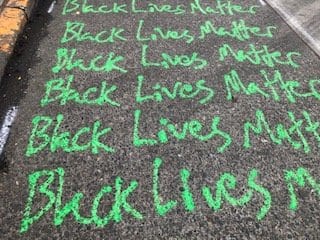 Black Lives Matter
Black Lives Matter
Black Lives Matter
Black Lives Matter
Black Lives Matt
Black LIves M